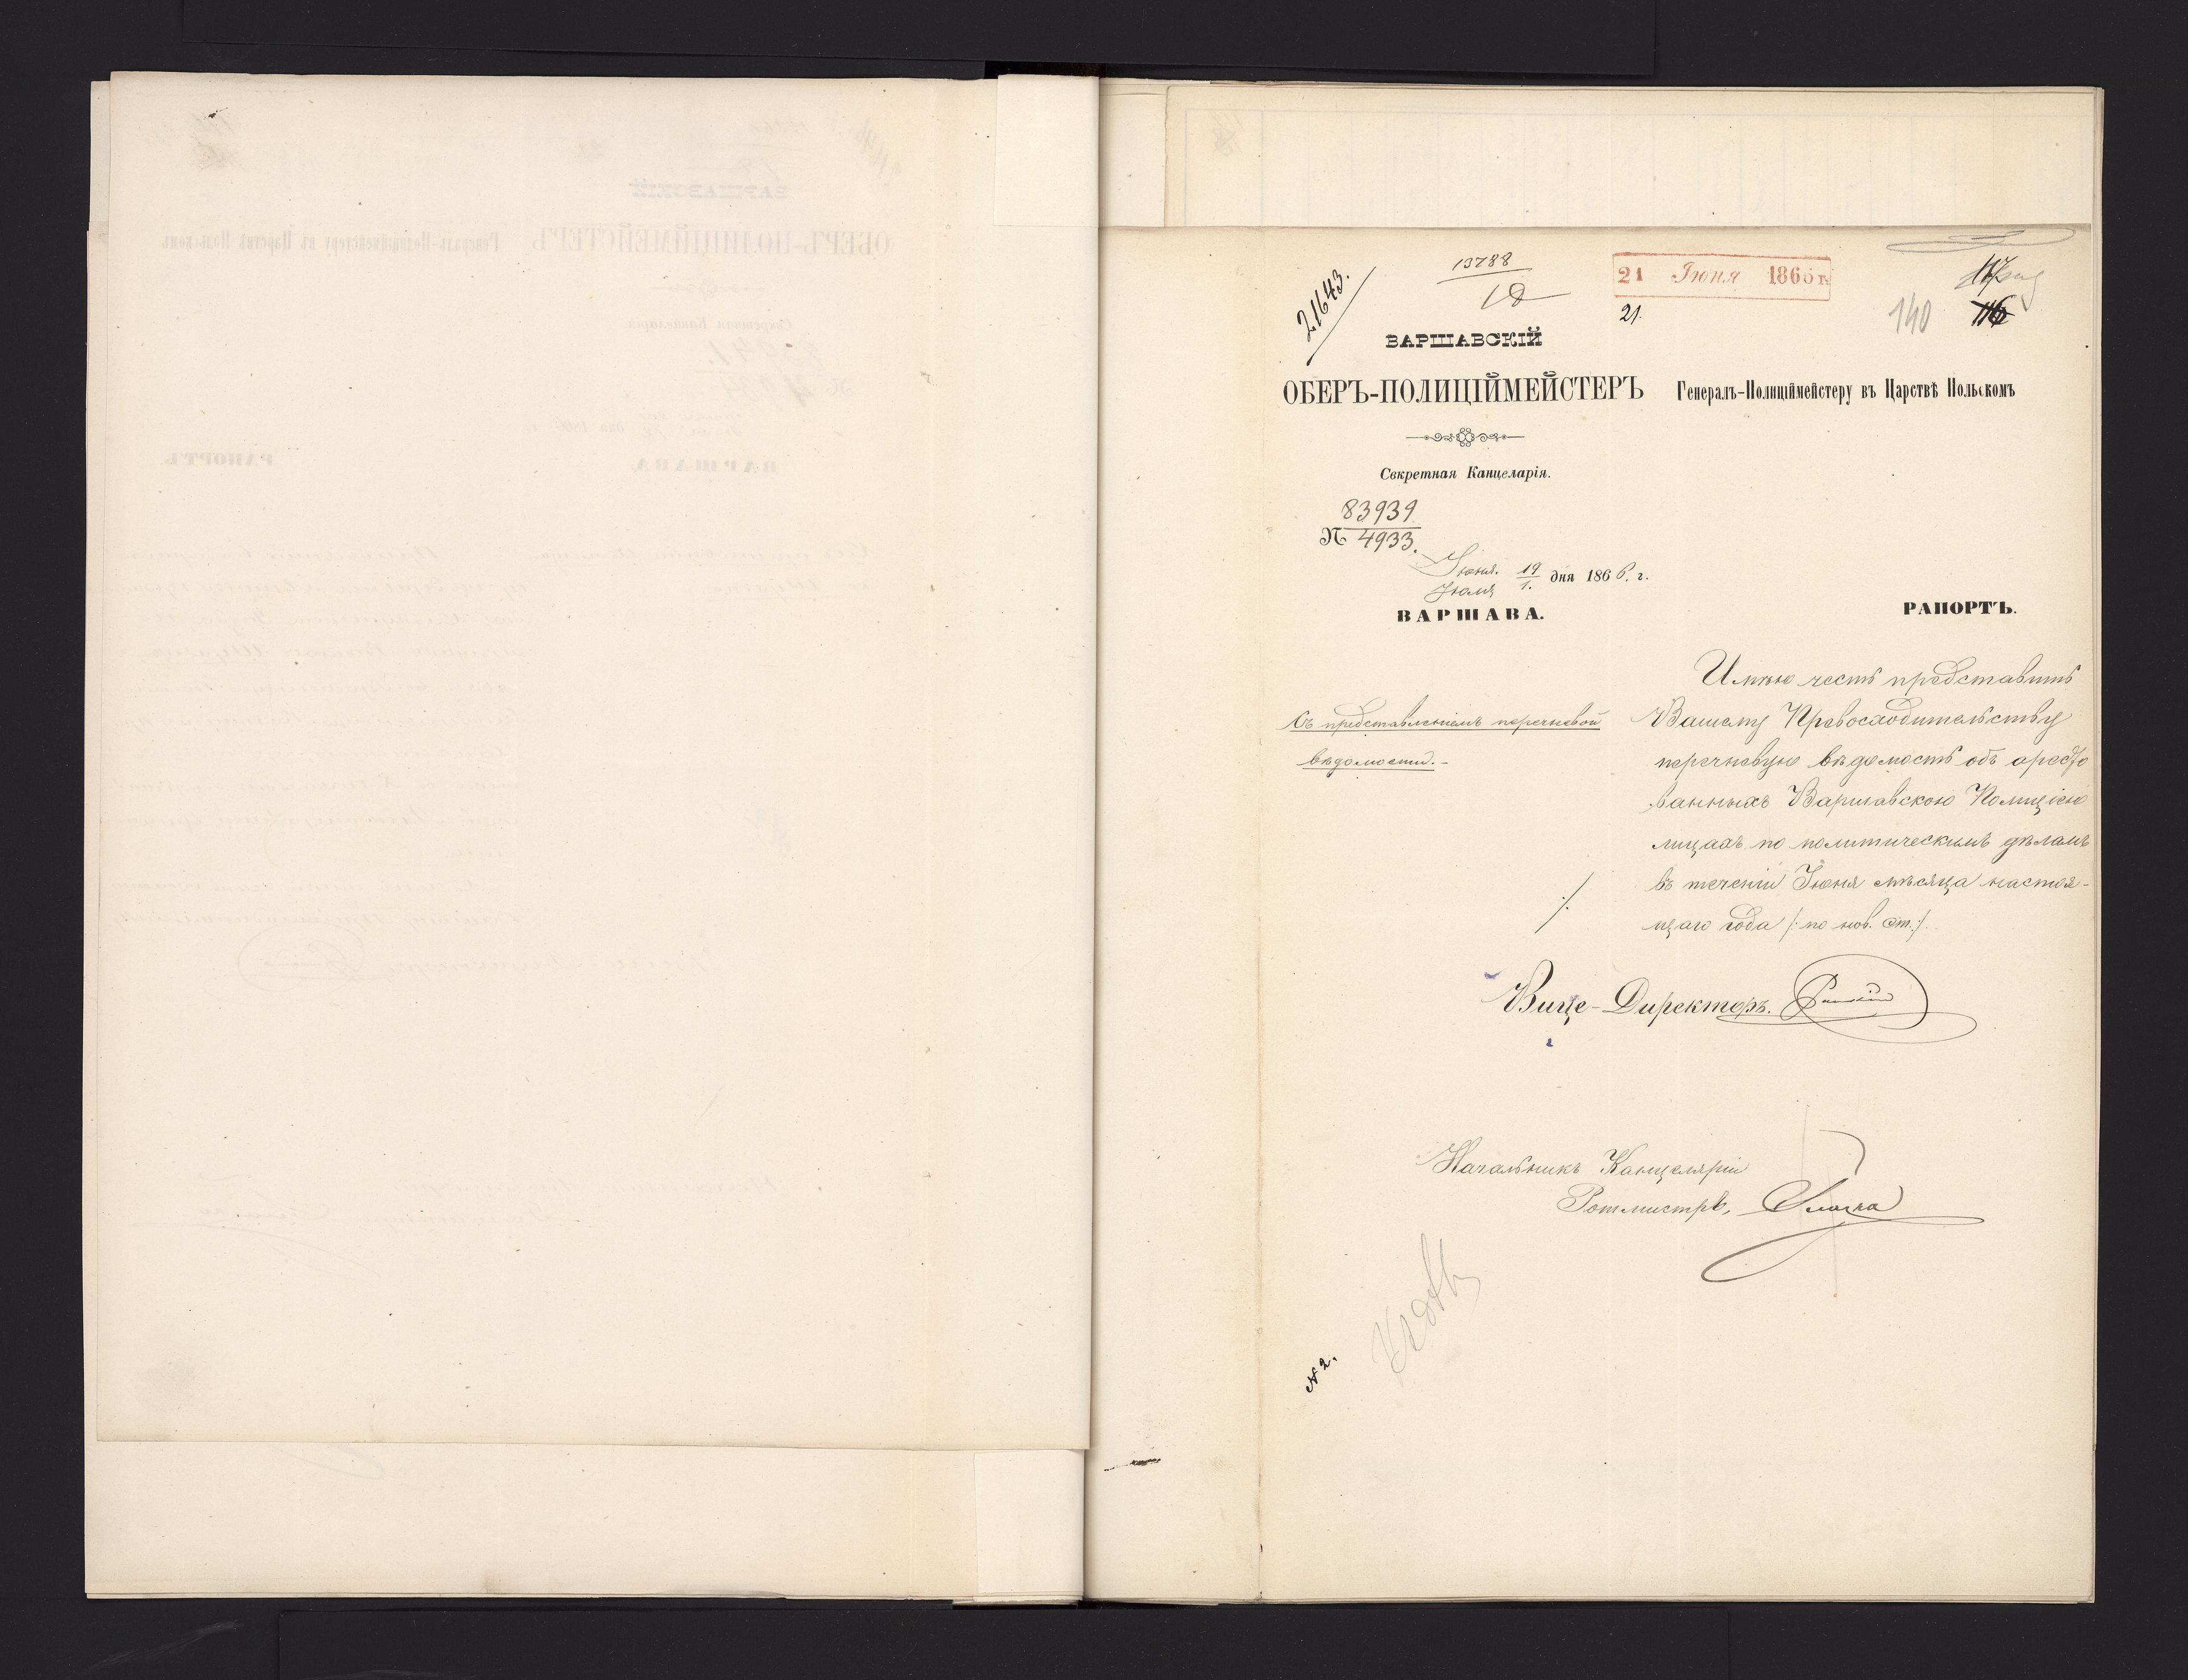 21643.
13788
10
21 Іюня 1866 г.
21.
117
116
140
ВАРШАВСКІЙ
ОБЕРЪ-ПОЛИЦІЙМЕЙСТЕРЪ
Генералъ-Полиціймейстеру въ Царствѣ Польскомъ
Секретная Канцеларія.
83939
№ 4933.
Іюня. 19 дня 1866. г.
Іюля 1.
ВАРШАВА.
РАПОРТЪ.
Съ представленіемъ перечневой
вѣдомости.-
Имѣю честь представить
Вашему Превосходительству
перечневую вѣдомость объ аресто
ванныхъ Варшавскою Полиціею
лицахъ по политическимъ дѣламъ
въ теченіи Іюня мѣсяца настоя-
щаго года /: по нов. ст. :/.
Вице-Директоръ.
Начальникъ Канцеляріи
Ротмистръ,
№ 2.